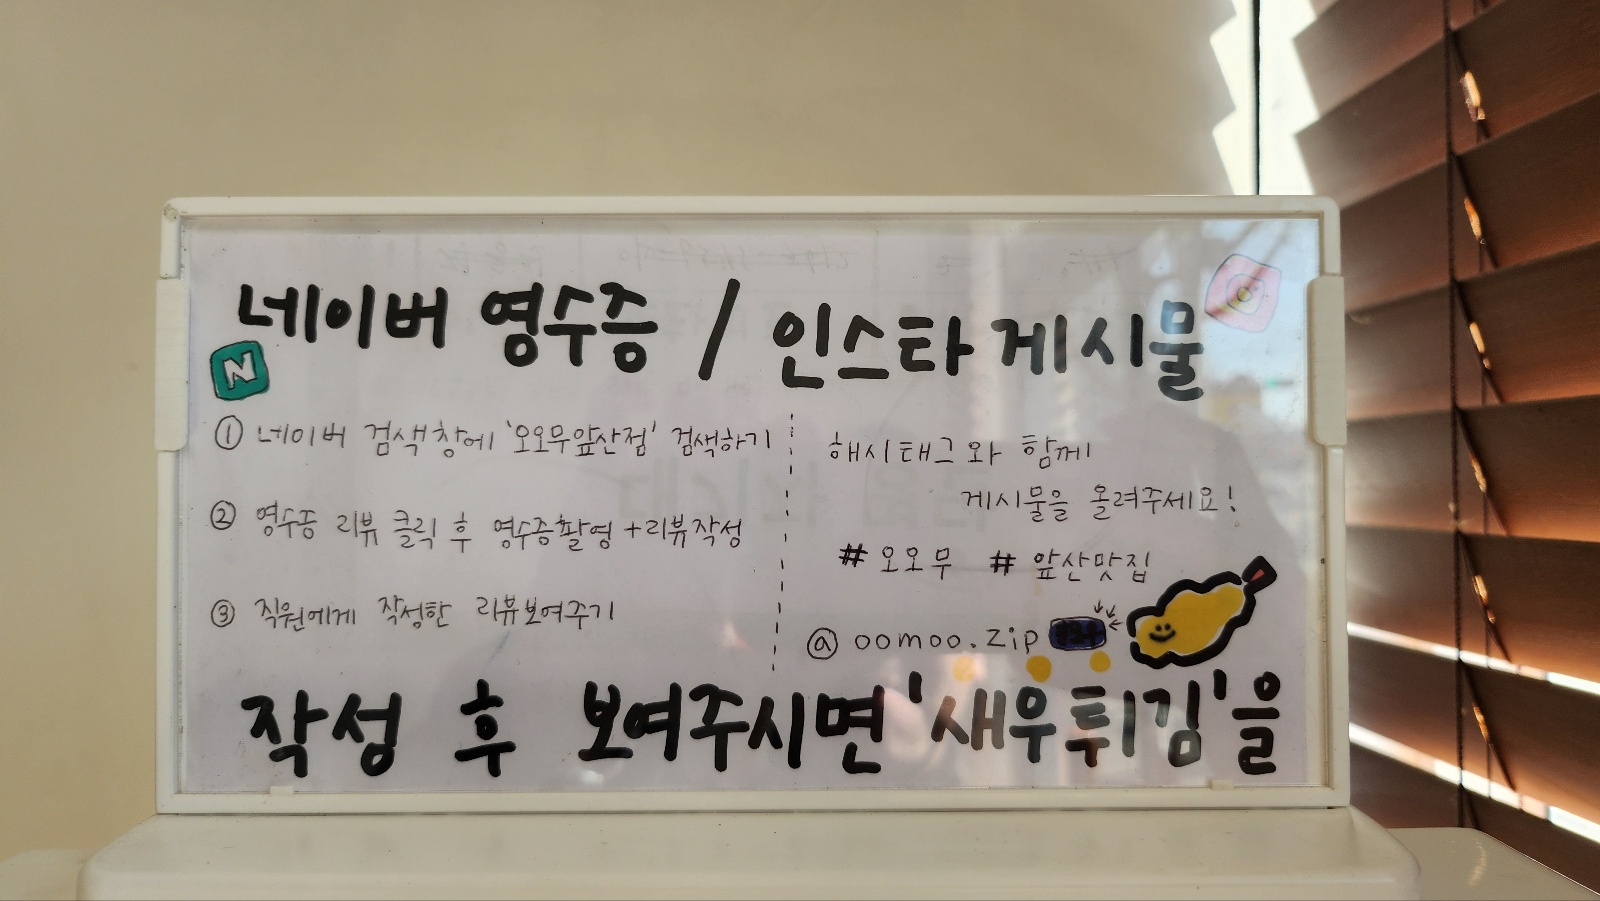 네이버 영수증 / 인스타 게시물
N
① 네이버 검색창에 '오오무앞산점' 검색하기
② 영수증 리뷰 클릭 후 영수증촬영+리뷰작성
③ 직원에게 작성한 리뷰보여주기
해시태그와 함께
게시물을 올려주세요!
# 오오무 # 앞산맛집
@ oomoo.zip
작성 후 보여주시면 '새우튀김'을